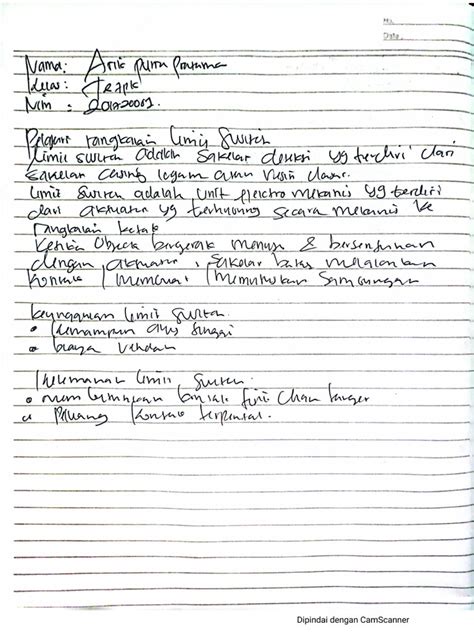 No.
Date.
Nama: Arik putra Pratama
Kelas:
Nim :
rangkaian limit switch
limit switch adalah sakelar deteksi yg terdiri dari
sakelar cering logam atau
limit switch adalah unit elektro mekanis yg terdiri
dari aktuator yg terhubung secara mekanis ke
rangkaian kotak
ketika Objek bergerak menuju & bersentuhan
dengan aktuator, sakelar batas melakukan
kontak / memutuskan sambungan
keunggulan limit switch
• kemampuan arus tinggi
• biaya rendah
kelemahan limit switch:
• membutuhkan kontak fisik
• Peluang kontak terpental.
Dipindai dengan CamScanner